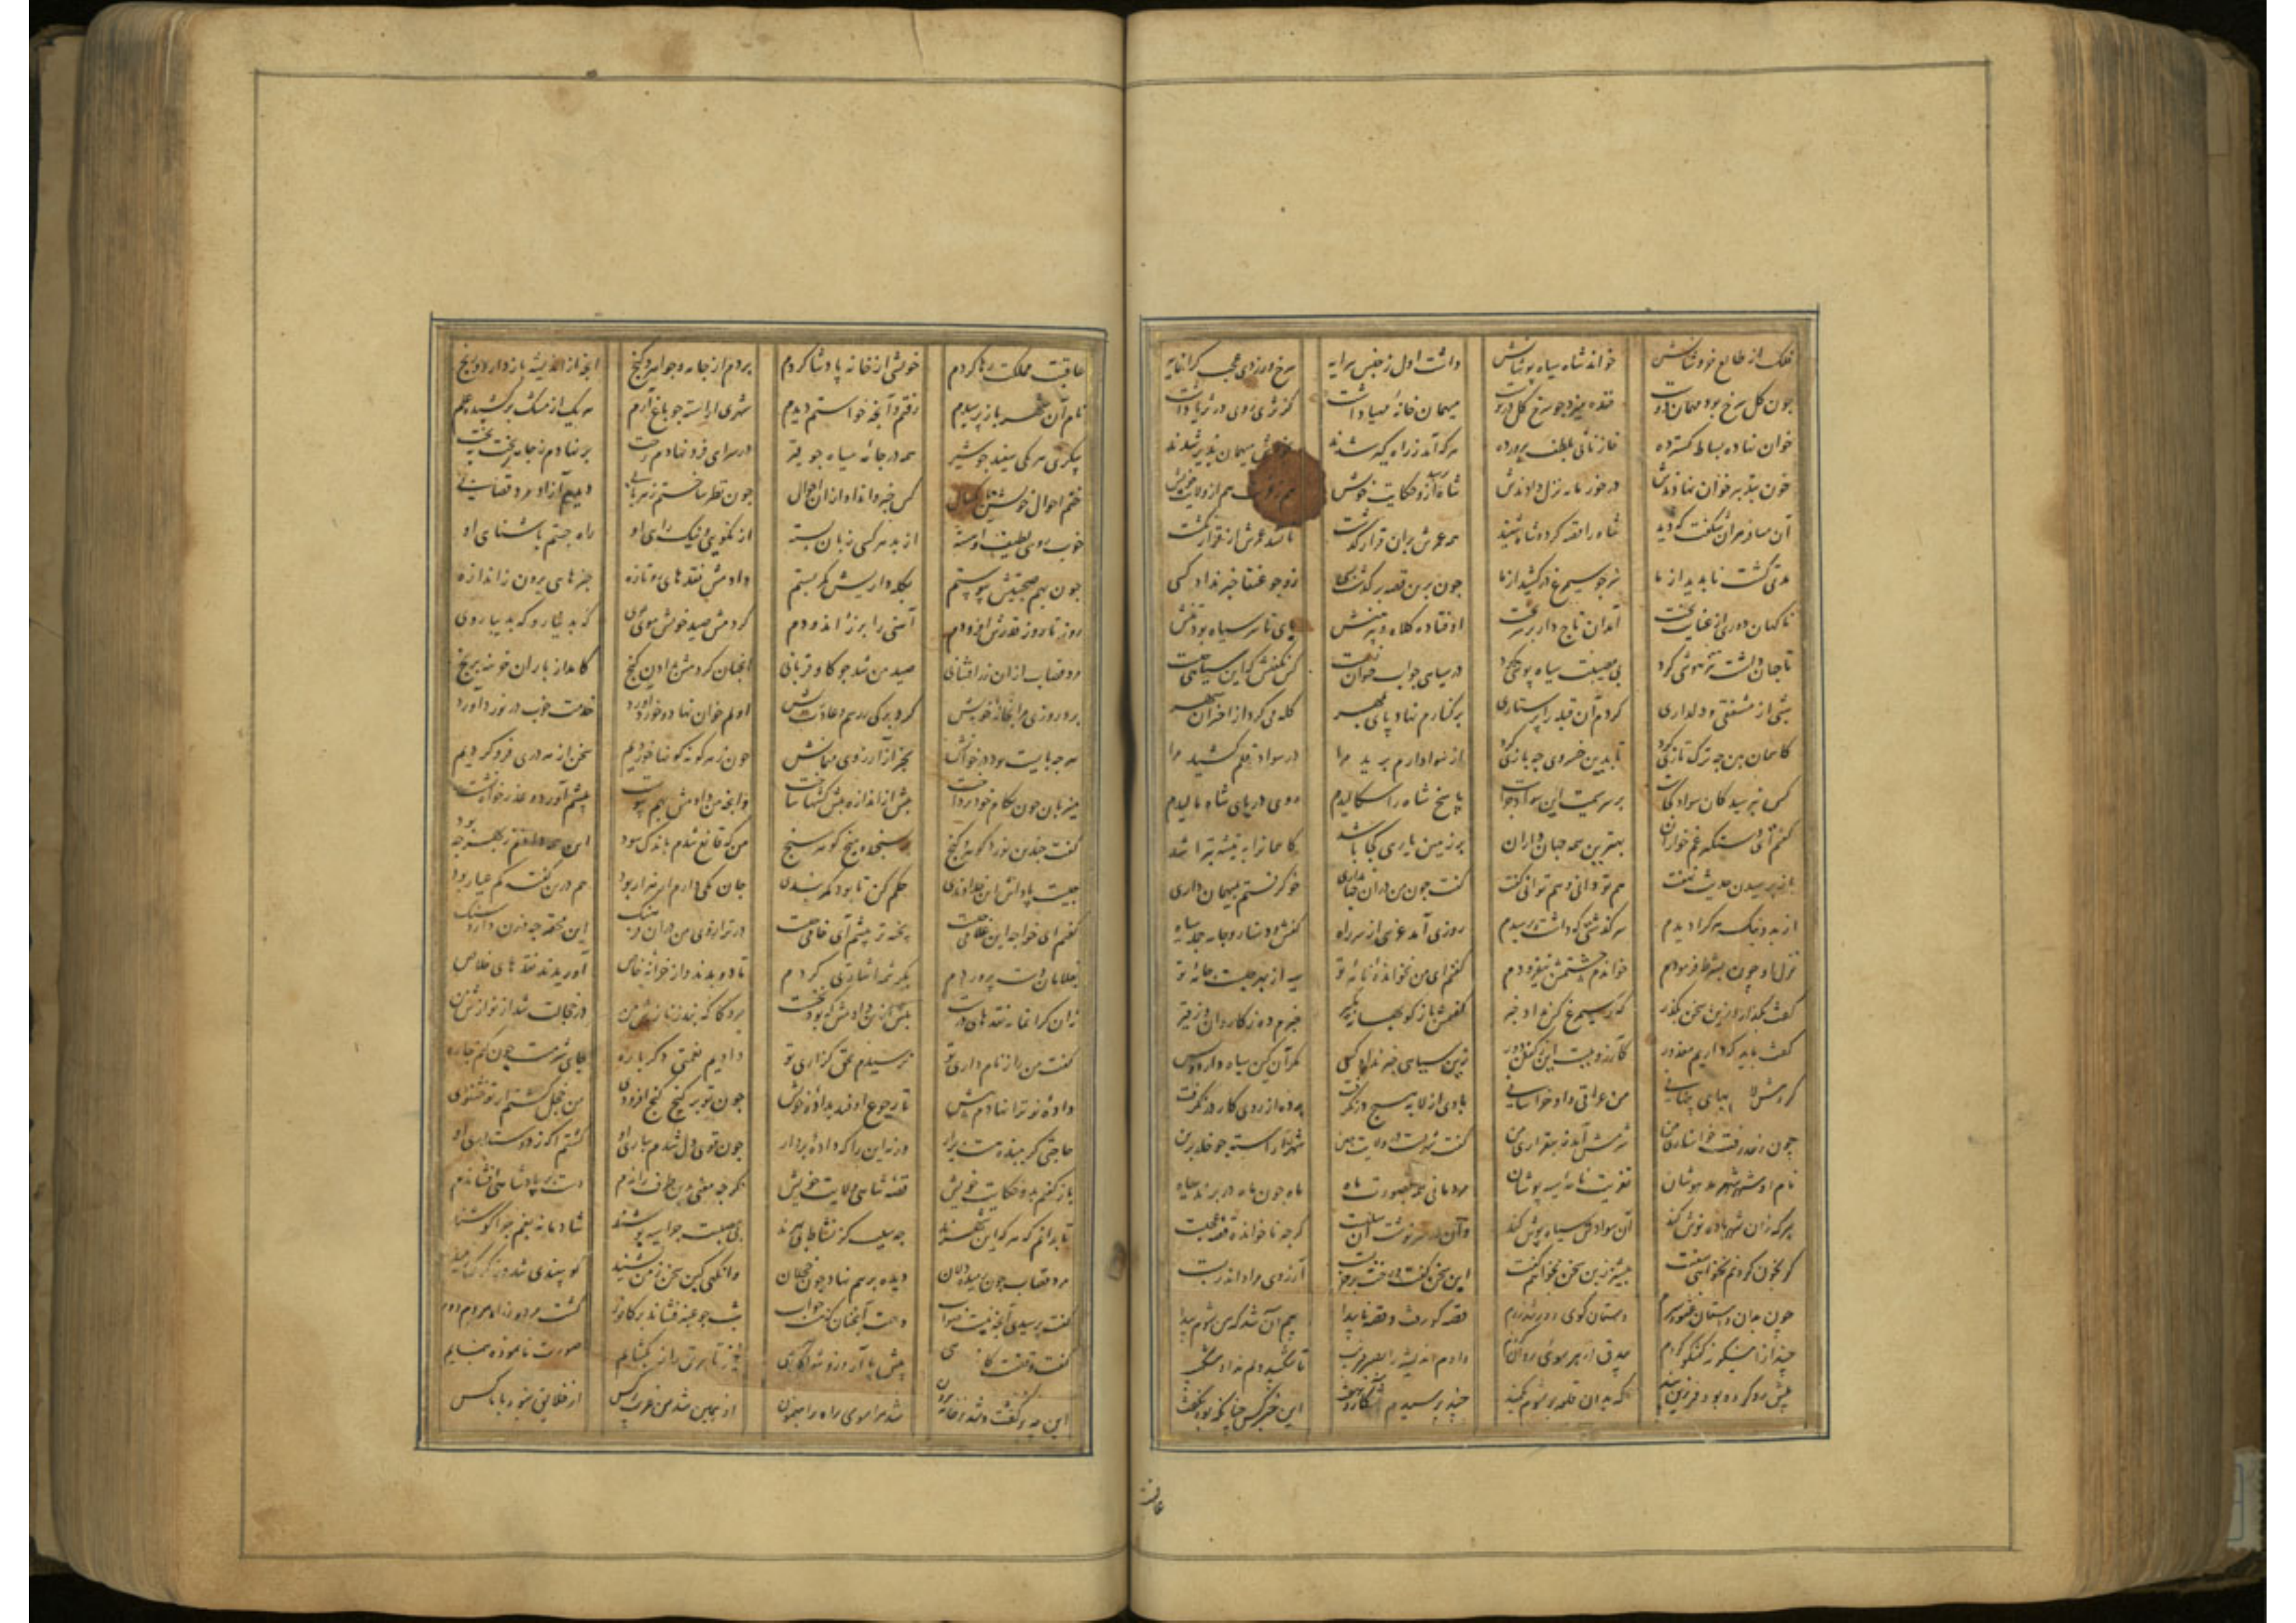 فلک از طالع خروشانش خواند شاه سیاه پوشانش داشت اول ز جنس پیرایه سرخ و زردی عجب گرانمایه
چون گل سرخ بود مهمان دوست خنده میزد چو سرخ گل در پوست میهمان خانه مهیا داشت کز ثری روی در ثریا داشت
خوان نهاده بساط گسترده خازنانی بلطف پرورده هر که آمد ز راه میهمان پذیر شدند
خوان نهادندش در خور پایه نزل دادندش شاه ازو حکایت خویش هم از ولایت خویش
آن مسافر هر آن شگفت که دید شاه را قصه کرد و شاه شنید همه عمرش بران قرار گذشت تا نشد عمرش از قرار نگشت
مدتی گشت ناپدید از ما سر چو سیمرغ در کشید از ما چون برین قصه بر گذشت بسی زو چو عنقا خبر نداد کسی
ناگهان روزی از عنایت بخت آمد آن تاجدار بر سر تخت کلاه و پیرهنش پای تا سر سیاه بود تنش
تا جهان داشت تیزهوشی کرد بی مصیبت سیاه پوشی کرد در سیاهی چو آب حیوان زیست کس نگفتش که این سیاهی چیست
شبی از مشفقی و دلداری کردم آن قبله را پرستاری بر کنارم نهاد پای بمهر گله می کرد از اختران سپهر
کاسمان بین چه ترکتازی کرد با چنین خسروی چه بازی کرد از سواد ارم برید مرا در سواد قلم کشید مرا
کس نپرسید کان سواد کجاست بر سر سیمت این سواد چراست پاسخ شاه را سگالیدم روی در پای شاه مالیدم
گفتم ای دستگیر غم خواران بهترین همه جهانداران بر زمین یاری کجا باشد کاسمانرا به تیشه بتراشد
باز پرسیدن حدیث نهفت هم تو دانی و هم توانی گفت گفت چون من دران جهانداری خو گرفتم بمیهمان داری
از بد و نیک هر کرا دیدم سرگذشتی که داشت پرسیدم روزی آمد غریبی از سر راه کفش و دستار و جامه جمله سیاه
نزل او چون بشرط فرمودم خواندم و حشمتش بیفزودم گفتم ای من نخوانده نامه تو سیه از بهر چیست جامه تو
گفت بگذار و ازین سخن بگذر که ز سیمرغ کس نداد خبر گفتمش باز گو بهانه مگیر خبرم ده ز کاروان و ز قیر
گفت باید که داریم معذور کارزوییست این ز گفتن دور زین سیاهی خبر ندارد کسی مگر آن کین سیاه دارد و بس
کردمش لابه های پنهانی من عراقی و او خراسانی با وی از لابه هیچ در نگرفت پرده از روی کار بر نگرفت
چون ز حد رفت خواستاری من شرمش آمد ز بیقراری من گفت شهریست در ولایت چین شهری آراسته چو خلد برین
نام او شهر شهر مدهوشان تعزیت خانه سیه پوشان مردمانی همه بصورت ماه همه چون ماه در پرند سیاه
هر که زان شهر باده نوش کند آن سوادش سیاه پوش کند سرنوشت آن سلبست گرچه ناخوانده قصه عجبست
گر بخون گردنم بخواهی سفت بیشتر زین سخن نخواهم گفت این سخن گفت و رخت بر خر بست آرزوی مرا در اندر بست
چون بدان داستان غنود سرم داستان گوی دور شد ز برم قصه گو رفت و قصه ناپیدا بیم آن شد که من شوم شیدا
بیدق از هر سوئی روان کردم دادم اندیشه را بصبر فریب تا شکیبد دلم نداد شکیب
بیش رد کرده بود فرزین بند که بدان قلعه بر شوم بکمند چند پرسیدم آشکار و نهفت این خبر کس چنانکه بود نگفت
عاقبت
عاقبت مملکت رها کردم خویشی از خانه پادشا کردم بردم از جامه و جواهر و گنج آنچه از اندیشه باز دارد رنج
نام آن شهر باز پرسیدم رفتم و آنچه خواستم دیدم شهری آراسته چو باغ ارم هر یک از مشک بر کشیده علم
پیکری هر یکی سفید چو شیر همه در جامه سیاه چو قیر در سرای فرو نهادم رخت بر نهادم ز جامه تخت بتخت
جستم احوال خویشتن یکسال کس خبر وا نداد ازان احوال چون نظر ساختم ز هر بابی دیدم آزاد مرد قصابی
خوب روی و لطیف و آهسته از بد هر کسی زبان بسته از نکویی و نیک رای او راه جستم بآشنای او
چون بهم صحبتیش پیوستم بکله داریش کمر بستم دادمش نقدهای رو تازه چیزهای برون ز اندازه
روز تا روز قدرش افزودم آهنی را بزر زر اندودم کردمش صید خویش موی بموی گه بدینار و گه بدیبا روی
مرد قصاب ازان زر افشانی صید من شد چو گاو قربانی آنچنان کردمش بدادن گنج کامد از بار آن خزینه برنج
برد روزی مرا بخانه خویش کرد برگی ز رسم و عادت بیش اولم خوان نهاد و خورد آورد خدمت خوب در نورد آورد
هرچه بایست بود در خوانش بجز از آرزوی مهمانش چون ز هر گونه گونها خوردیم سخن از هر دری فرو کردیم
میزبان چون ز کار خود پرداخت بیش از اندازه پیشکشها ساخت وانچه من دادمش بهم پیوست پیشم آورد و عذر خواه نشست
گفت چندین نورد گوهر و گنج بر نسنجیده هیچ گوهر سنج من که قانع شدم باندک سود این همه دادنم ز بهر چه بود
چیست پاداش این خداوندی حکم کن تا بود کمر بندی جان یکی دارم ار هزار بود هم درین کفه کم عیار بود
گفتم ای خواجه این غلامی چیست پخته تر پیشم آی خامی چیست در ترازوی مرد با فرهنگ این محقر چه وزن دارد و سنگ
بغلامان دست پرورم بکرشمه اشارتی کردم تا دویدند و از خزانه خاص آوریدند نقدهای خلاص
زان گرانمایه نقدهای درست بیش ازان دادمش که بود نخست مرد کاگه نبد ز نازش من در خجالت شد از نوازش من
گفت من را ز وام داری تو نرسیدم بحق گزاری تو دادیم نعمتی دگر باره جای شرمست چون کنم چاره
داده تو ترا نهادم پیش تا رجوع اوفتد بداده خویش چون تو بر گنج گنج افزودی من خجل گشتم ار تو خشنودی
حاجتی گر ببنده هست بیار ورنه این را که داده بردار چون قوی دل شدم بیاری او گشتم آگه ز دوستداری او
باز گفتم بدو حکایت خویش قصه شاهی و ولایت خویش که چه معنی بدین طرف راندم دست بر پادشاهی افشاندم
تا بدانم که هر که این شهرند چه سبب کز نشاط بی بهرند بی مصیبت چرا سیه پوشند شادمانه بغم چرا کوشند
مرد قصاب چون شنید سخن دیده بر هم نهاد چون خجلان
گفت پرسیدی آنچه نیست صواب دهمت آنچنان که هست جواب شب چو عنبر فشاند بر کافور گشت مردم ز راه مردم دور
گفت وقتست کانچه می خواهی پیش باز آرزو شو آگاهی خیز تا بر تو راز بگشایم صورت نانموده بنمایم
این چو گفت و شد ز خانه برون شد مرا سوی راه راهنمون او همی شد من غریب از پس از خلایق نبود با ما کس